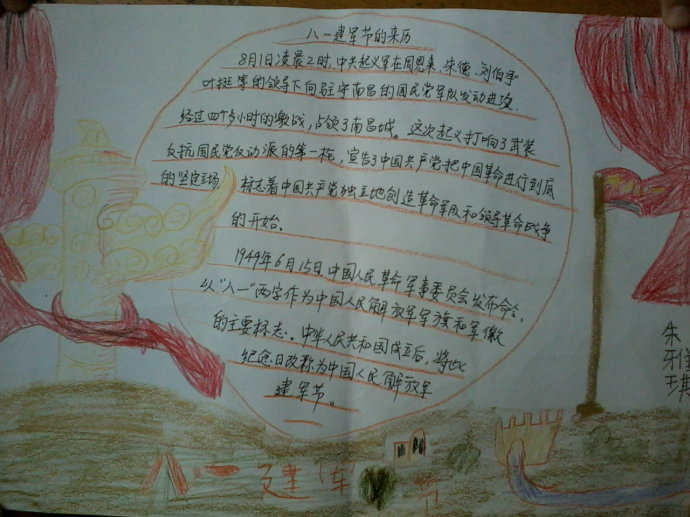 八一建军节的来历
8月1日凌晨2时,中共起义军在周恩来、朱德、刘伯承
叶挺等的领导下向驻守南昌的国民党军队发动进攻.
经过四个多小时的激战,占领了南昌城。这次起义打响了武装
反抗国民党反动派的第一枪,宣告了中国共产党把中国革命进行到底
的坚定立场,标志着中国共产党独立地创造革命军队和领导革命战争
的开始。
1949年6月15日中国人民革命军事委员会发布命令,
以"八一"两字作为中国人民解放军军旗和军徽
的主要标志。中华人民共和国成立后,将此
纪念日改称为中国人民解放军
建军节。
朱
雅
琪
八一建军节